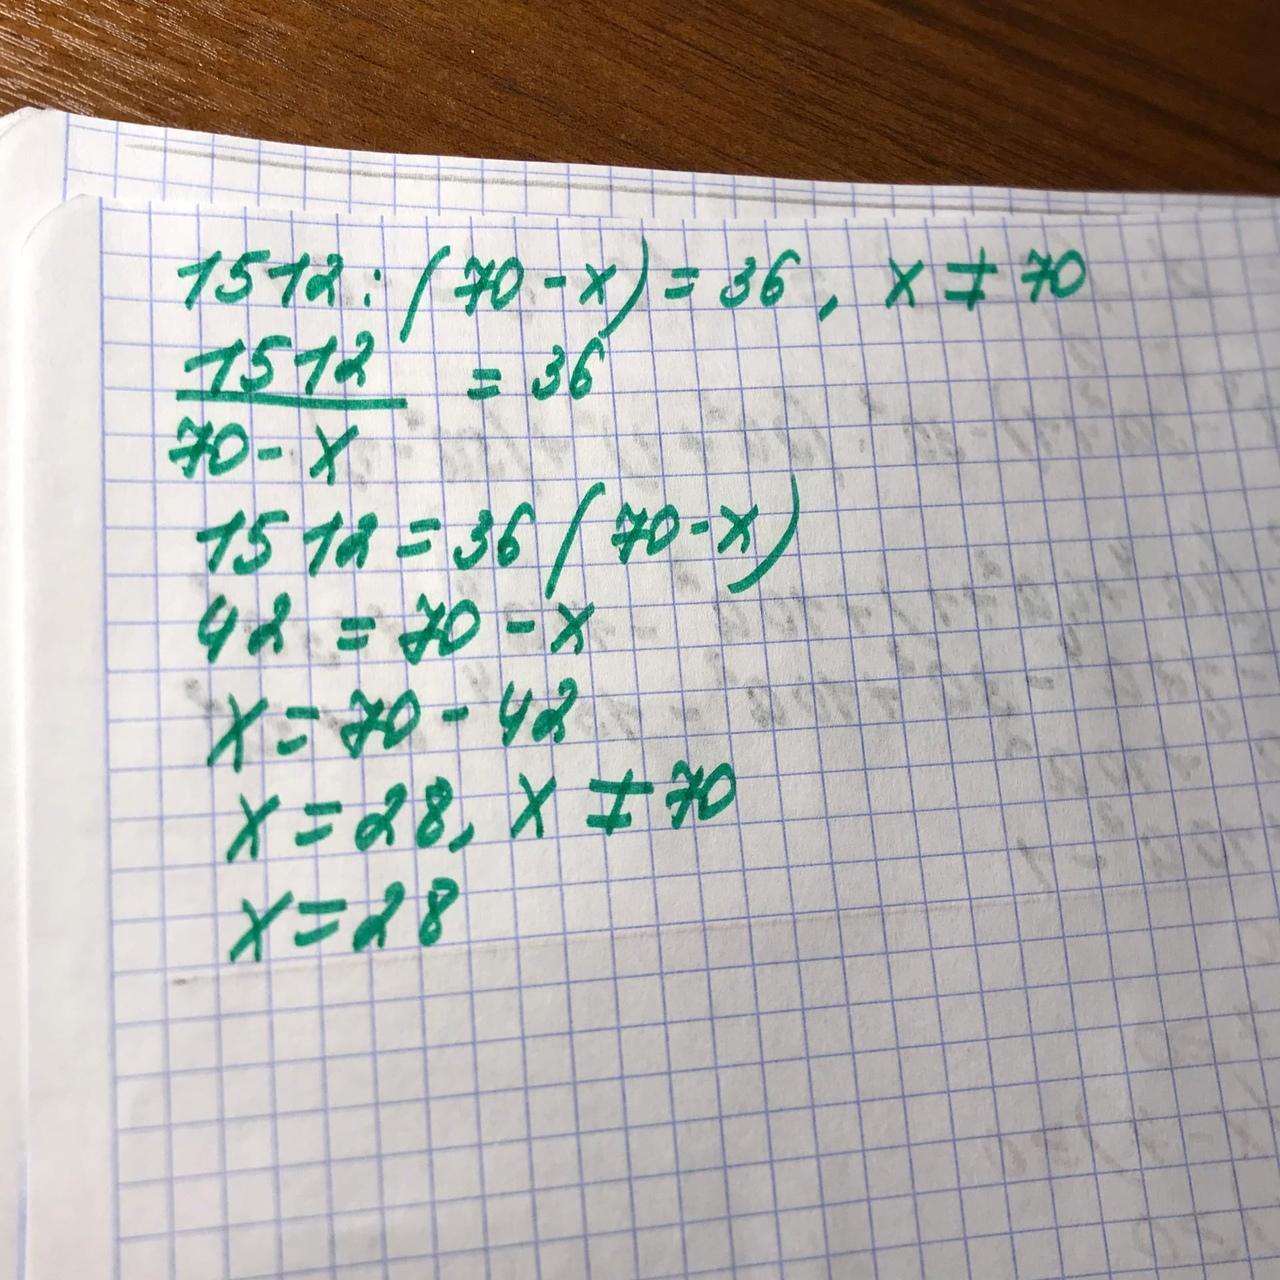 1512 : (70 - x) = 36, x ≠ 70
1512 = 36
70 - x
1512 = 36 (70 - x)
42 = 70 - x
x = 70 - 42
x = 28, x ≠ 70
x = 28